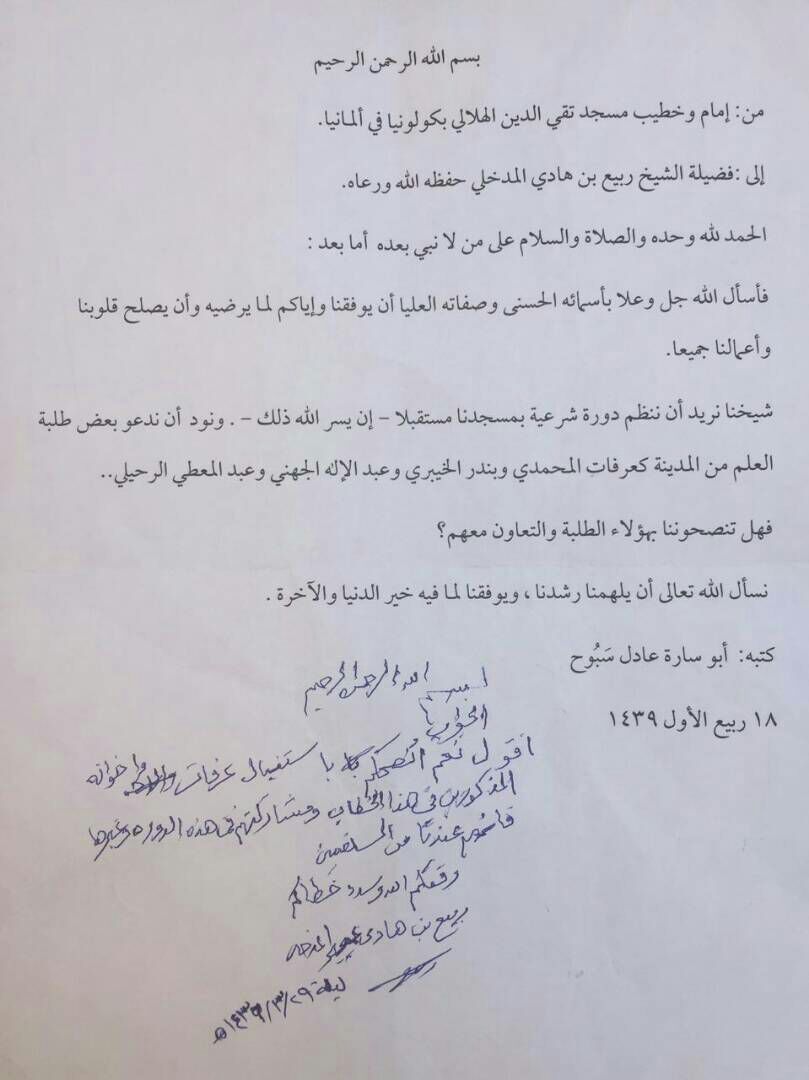 بسم الله الرحمن الرحيم
من: إمام وخطيب مسجد تقي الدين الهلالي بكولونيا في ألمانيا.
إلى :فضيلة الشيخ ربيع بن هادي المدخلي حفظه الله ورعاه.
الحمد لله وحده والصلاة والسلام على من لا نبي بعده أما بعد :
فأسأل الله جل وعلا بأسمائه الحسنى وصفاته العليا أن يوفقنا وإياكم لما يرضيه وأن يصلح قلوبنا
وأعمالنا جميعا.
شيخنا نريد أن ننظم دورة شرعية بمسجدنا مستقبلا – إن يسر الله ذلك – . ونود أن ندعو بعض طلبة
العلم من المدينة كعرفات المحمدي وبندر الخيبري وعبد الإله الجهني وعبد المعطي الرحيلي..
فهل تنصحوننا بهؤلاء الطلبة والتعاون معهم؟
نسأل الله تعالى أن يلهمنا رشدنا ، ويوفقنا لما فيه خير الدنيا والآخرة .
كتبه: أبو سارة عادل سَبُوح
١٨ ربيع الأول ١٤٣٩
بسم الله الرحمن الرحيم
الجواب
أقول نعم أنصحكم باستقبال عرفات وإخوانه
المذكورين في هذا الخطاب ومشاركتهم في هذه الدورة وغيرها
فإنهم عندنا من السلفيين
وفقكم الله وسدد خطاكم
ربيع بن هادي عمير المدخلي
ليلة ٢٩/٣/١٤٣٩هـ